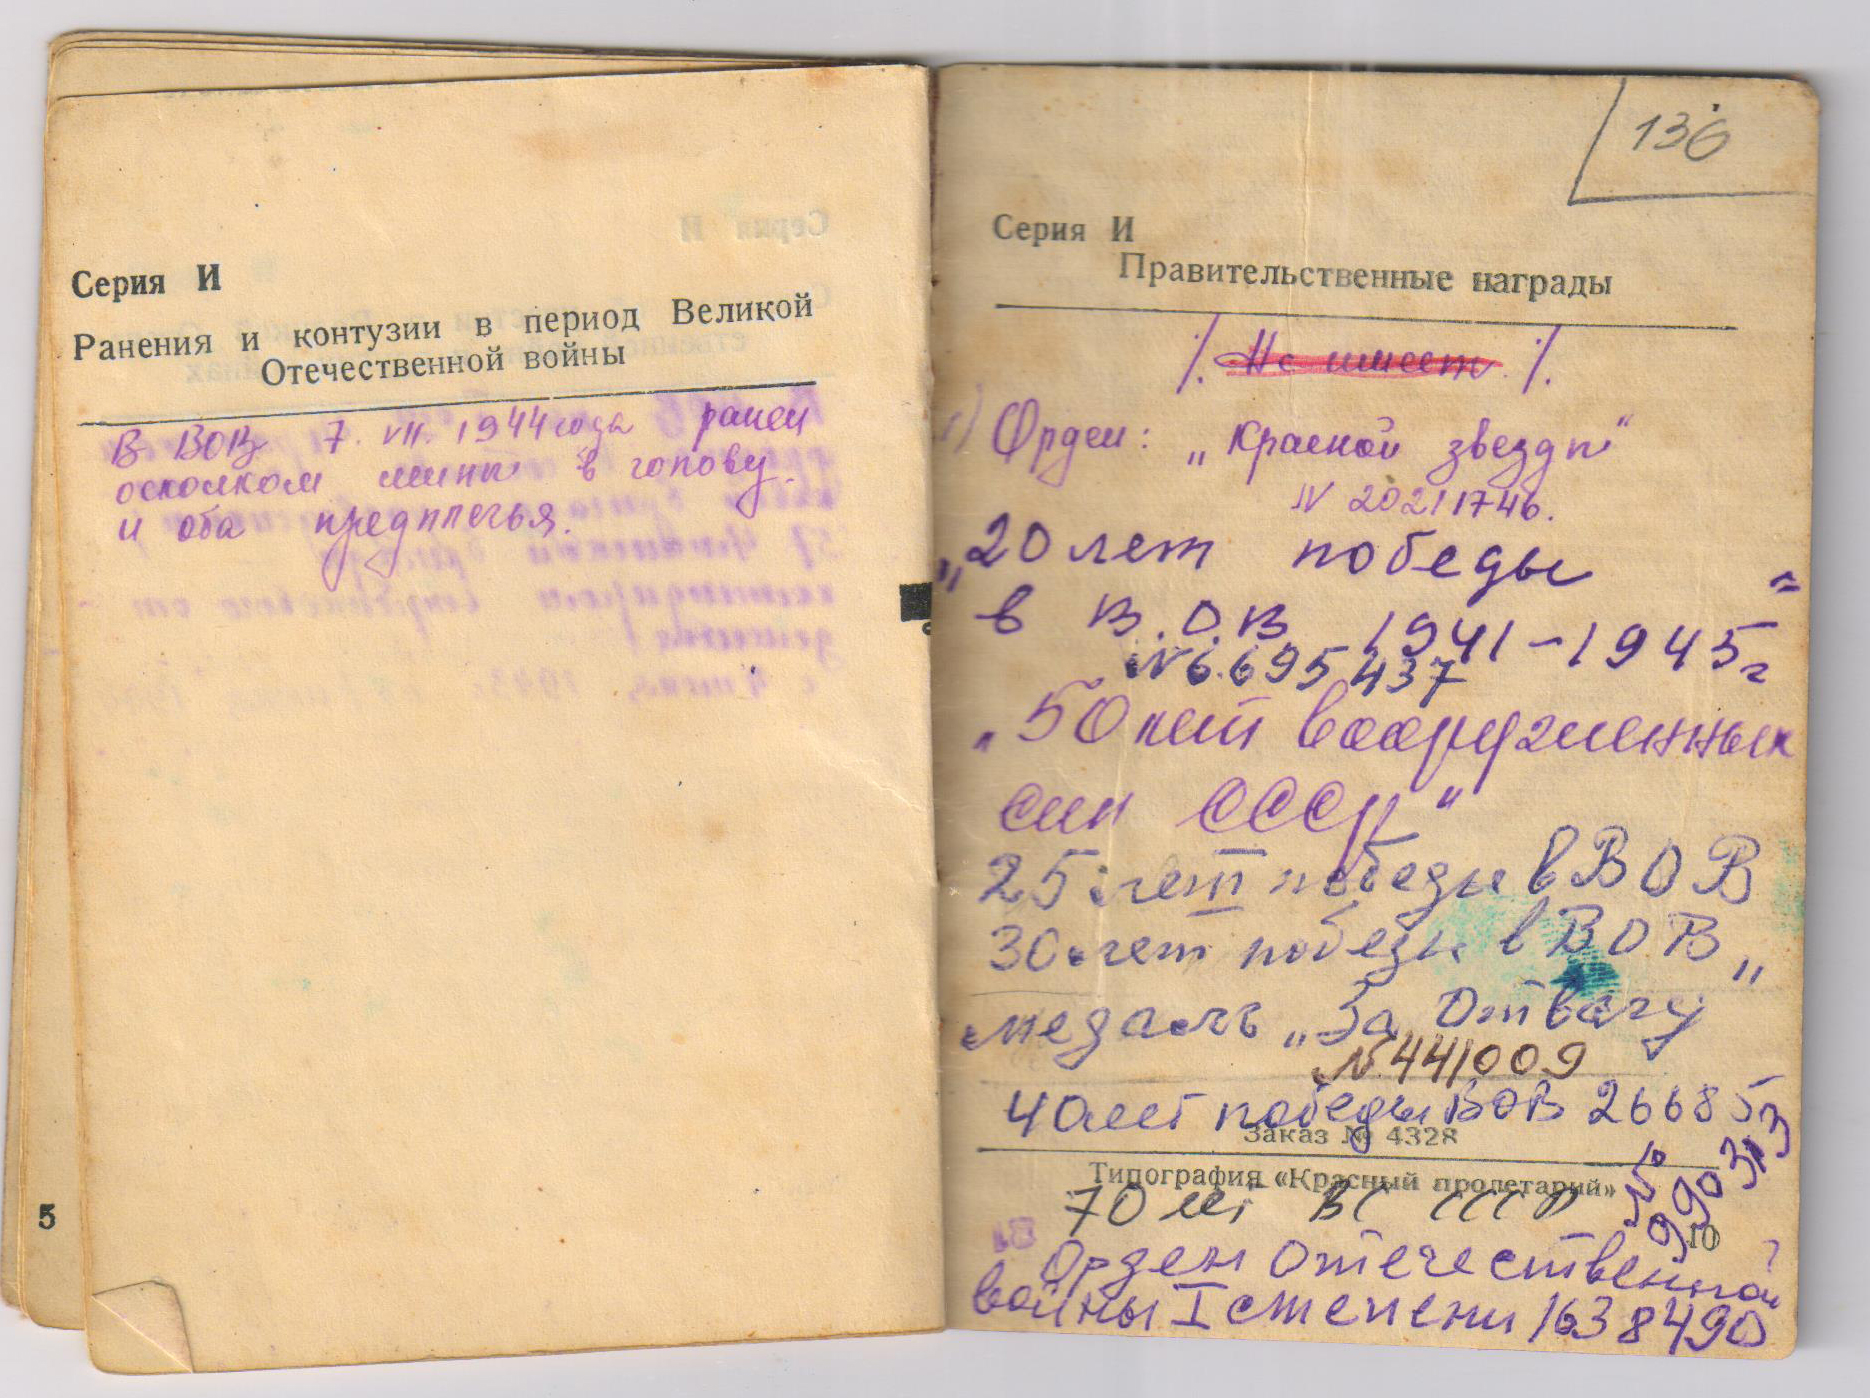 Серия И
Ранения и контузии в период Великой
Отечественной войны
В ВОВ 7. VII. 1944 года ранен
осколком мины в голову
и оба предплечья.
5
136
Серия И
Правительственные награды
./. Не имеет ./.
1) Орден: „Красной звезды"
N 2021746.
„20 лет победы
в В.О.В 1941-1945г"
N 6.695437
„50 лет вооруженных
сил СССР"
25 лет победы в ВОВ
30 лет победы в ВОВ
медаль „За Отвагу"
N 441009
40 лет победы ВОВ 266855
Заказ № 4328
Типография «Красный пролетарий»
70 лет ВС СССР
№ 990313
10
Орден отечественной
войны I степени 1638490